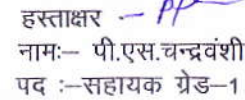 हस्ताक्षर :-
नामः– पी.एस.चन्द्रवंशी
पद :–सहायक ग्रेड–1